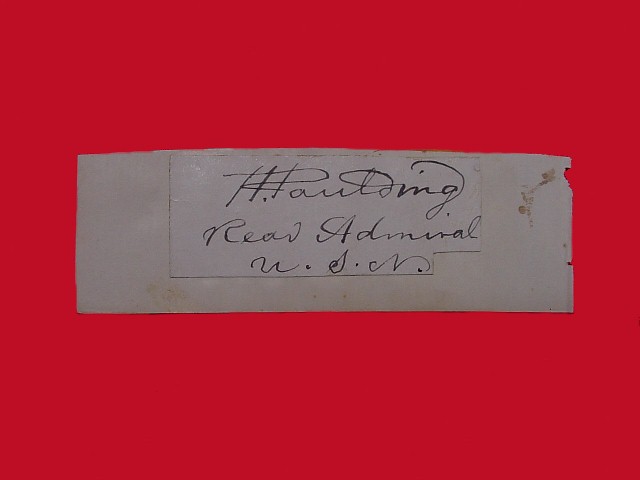 H. Paulding
Rear Admiral
U. S. N.